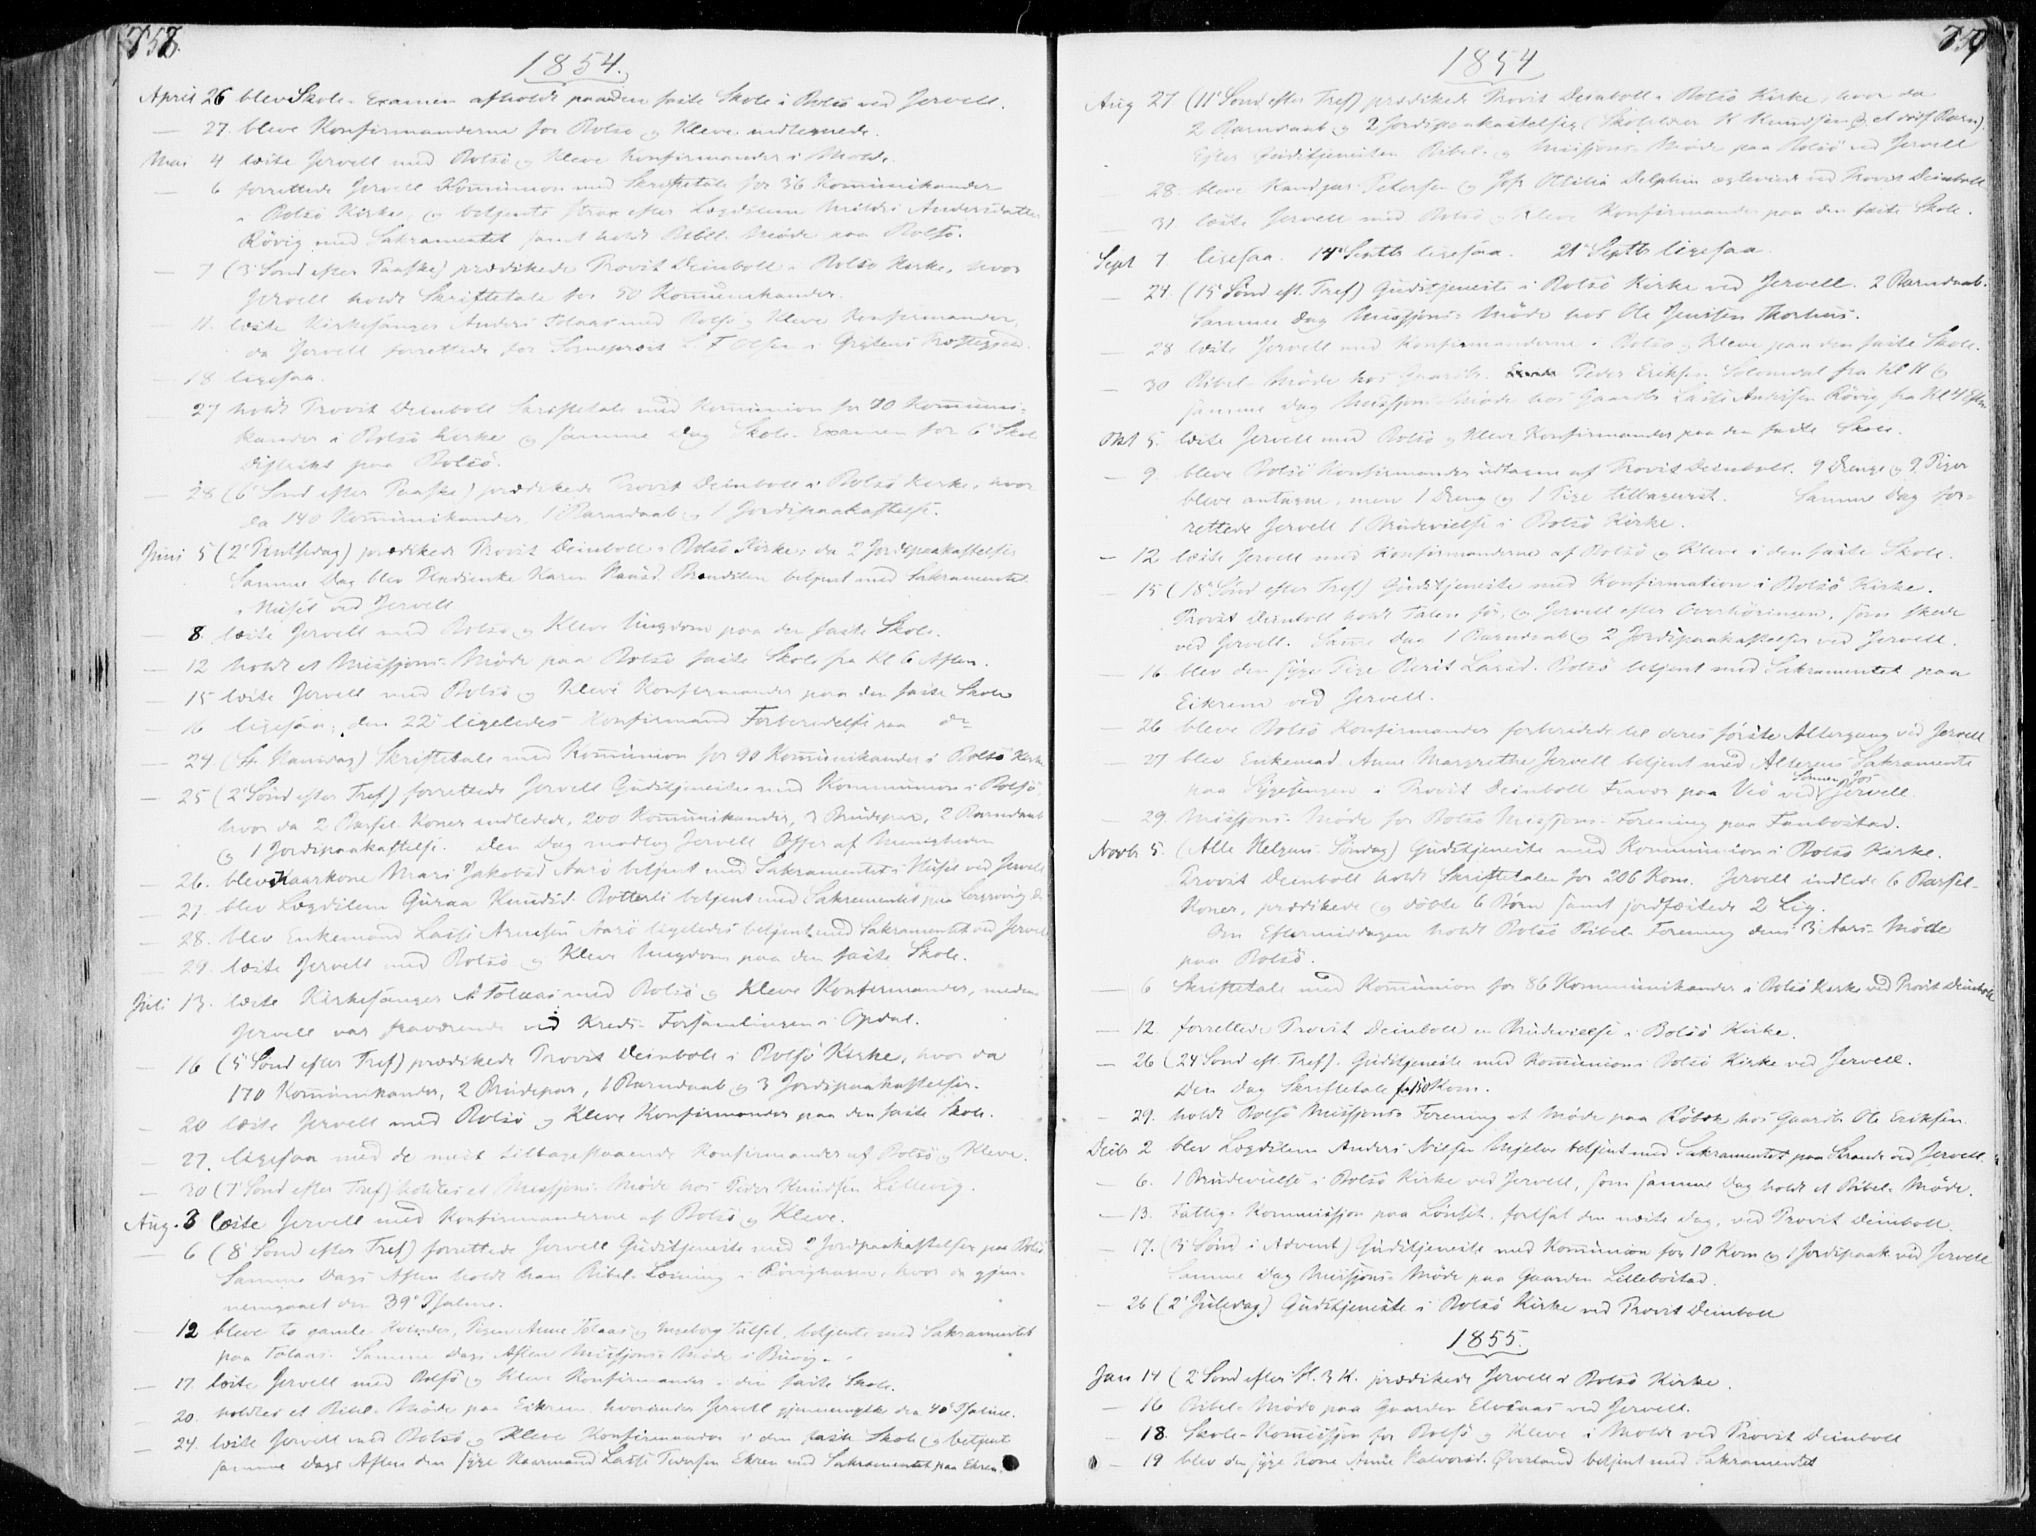 758.
1854.
April 26 blev Skole-Examen afholdt paa den faste Skole i Bolsö ved Jervell.
— 27. bleve Konfirmanderne for Bolsö og Kleve indtegnede.
Mai 4 læste Jervell med Bolsö og Kleve Konfirmander i Molde.
— 6 forrettede Jervell Kommunion med Skriftetale for 36 Kommunikander
i Bolsö Kirke, og betjente strax efter Lægdslem Andersdatter
Rövig med Sakramentet samt holdt Bibel-Möde paa Bolsö.
— 7 (3' Sönd efter Paaske) prædikede Provst Deinboll i Bolsö Kirke, hvor
Jervell holdt Skriftetale for 50 Kommunikander.
— 11. læste Kirkesanger Anders Tolaas med Bolsö og Kleve Konfirmander,
da Jervell forrettede for Sognepræst i Grytens Præstegjeld.
— 18 ligesaa.
— 27 holdt Provst Deinboll Skriftetale med Kommunion for 70 Kommuni-
kander i Bolsö Kirke og samme Dag Skole-Examen for 6' Skole
Distrikt paa Bolsö.
— 28 (6' Sönd efter Paaske) prædikede Provst Deinboll i Bolsö Kirke, hvor
da 140 Kommunikander, 1 Barndaab og 1 Jordspaakastelse.
Juni 5 (2' Pintsedag) prædikede Provst Deinboll i Bolsö Kirke, da 2 Jordspaakastelser
Samme Dag blev Karen betjent med Sakramentet
ved Jervell
— 8. læste Jervell med Bolsö og Kleve Ungdom paa den faste Skole.
— 12 holdt et Missjons-Möde paa Bolsö faste Skole fra Kl 6 Aften.
— 15 læste Jervell med Bolsö og Kleve Konfirmander paa den faste Skole
— 16 ligesaa; den 22' ligeledes Konfirmand Forberedelse paa do
— 24 (St Hansdag) Skriftetale med Kommunion for 90 Kommunikander i Bolsö Kirke
— 25 (2' Sönd efter Tref) forrettede Jervell Gudstjeneste med Kommunion i Bolsö,
hvor da 2 Barsel-Koner indledede, 200 Kommunikander, 2 Brudepar, 2 Barndaab
og 1 Jordspaakastelse. Den Dag modtog Jervell Offer af Menigheden
— 26. blev Kaarkone Mari Jakobsd Aarö betjent med Sakramentet i Huset ved Jervell
— 27. blev Lægdslem Guraa Knudsd. betjent med Sakramentet paa
— 28. blev Enkemand Lasse Aarö ligeledes betjent med Sakramentet ved Jervell
— 29. læste Jervell med Bolsö og Kleve Ungdom paa den faste Skole.
Juli 13. læste Kirkesanger A Tolaas med Bolsö og Kleve Konfirmander, medens
Jervell var fraværende ved Kreds-Forsamlingen i Opdal.
— 16 (5' Sönd efter Tref) prædikede Provst Deinboll i Bolsö Kirke, hvor da
170 Kommunikander, 2 Brudepar, 1 Barndaab og 3 Jordspaakastelser.
— 20 læste Jervell med Bolsö og Kleve Konfirmander paa den faste Skole.
— 27. ligesaa med de mest tilbagestaaende Konfirmander af Bolsö og Kleve.
— 30 (7' Sönd efter Tref) holdtes et Missjons-Möde hos Peder Knudsen Lillevig.
Aug. 3 læste Jervell med Konfirmanderne af Bolsö og Kleve.
— 6 (8' Sönd efter Tref) forrettede Jervell Gudstjeneste med 2 Jordpaakastelser paa Bolsö
Samme Dags Aften holdt han Bibel-Læsning i Rövighusen, hvor da gjen-
nemgaaet den 39' Psalme.
— 12 bleve to gamle Kvinder, Pigen Anne Tolaas og Ingeborg, betjente med Sakramentet
paa Tolaas. Samme Dags Aften Missjons-Möde i
— 17. læste Jervell med Bolsö og Kleve Konfirmander i den faste Skole.
— 20. holdtes et Bibel-Möde paa Eikrem, hvorunder Jervell gjennemgik den 40' Psalme.
— 24. læste Jervell med Bolsö og Kleve Konfirmander i den faste Skole og betjente
samme Dags Aften den syge Kaarmand Lasse Ekren med Sakramentet paa Ekren.
759
1854
Aug 27 (11' Sönd efter Tref) prædikede Provst Deinboll i Bolsö Kirke, hvor da
2 Barndaab og 2 Jordspaakastelser (Skolelærer K Knudsen & et Barn).
Efter Gudstjenesten Bibel- og Missjons-Möde paa Bolsö ved Jervell
— 28. bleve Petersen og Delphin ægteviede ved Provst Deinboll
— 31 læste Jervell med Bolsö og Kleve Konfirmander paa den faste Skole.
Sept 7 ligesaa. 14' Septbr ligesaa. 21' Septbr ligesaa.
— 24. (15' Sönd eft. Tref) Gudstjeneste i Bolsö Kirke ved Jervell. 2 Barndaab.
Samme Dag Missjons-Möde hos Ole Jensen Thorhus.
— 28 læste Jervell med Konfirmanderne i Bolsö og Kleve paa den faste Skole.
— 30 Bibel-Möde hos Gaardb. Peder Eriksen Solemdal fra Kl 11 og
samme Dag Missjons-Möde hos Gaardb Lasse Andersen Rövig fra Kl 4 Eftm
Okt 5. læste Jervell med Bolsö og Kleve Konfirmander paa den faste Skole.
— 9 bleve Bolsö Konfirmander udtagne af Provst Deinboll. 9 Drenge og 9 Piger
bleve antagne, men 1 Dreng og 1 Pige tilbagevist. Samme Dag for-
rettede Jervell 1 Brudevielse i Bolsö Kirke.
— 12 læste Jervell med Konfirmanderne af Bolsö og Kleve i den faste Skole.
— 15 (18' Sönd efter Tref) Gudstjeneste med Konfirmation i Bolsö Kirke.
Provst Deinboll holdt Talen för, og Jervell efter Overhöringen, som skede
ved Jervell. Samme Dag 1 Barndaab og 2 Jordspaakastelser ved Jervell.
— 16. blev den syge Pige Berit Larsd. Bolsö betjent med Sakramentet paa
Eikrem ved Jervell.
— 26 bleve Bolsö Konfirmander forberedede til deres förste Altergang ved Jervell
— 27 blev Enkemad. Anne Margrethe Jervell betjent med Alterens Sakramente
paa Sygesengen i Provst Deinboll Fravær paa Veö ved Sönnen Jervell.
— 29. Missjons-Möde for Bolsö Missjons-Forening paa Fanbostad.
Novbr 5. (Alle Helgens Söndag) Gudstjeneste med Kommunion i Bolsö Kirke.
Provst Deinboll holdt Skriftetalen for 206 Kom. Jervell indlede 6 Barsel-
Koner, prædikede og döbte 6 Börn samt jordfæstede 2 Lig.
Om Eftermiddagen holdt Bolsö Bibel-Forening dens 3' Aars-Möde
paa Bolsö.
— 6 Skriftetale med Kommunion for 86 Kommunikander i Bolsö Kirke ved Provst Deinboll
— 12. forrettede Provst Deinboll en Brudevielse i Bolsö Kirke.
— 26 (24 Sönd eft. Tref). Gudstjeneste med Kommunion i Bolsö Kirke ved Jervell.
Den Dag Skriftetale for 50 Kom.
— 29. holdt Bolsö Missjons Forening et Möde paa Röbæk hos Gaardb. Ole Eriksen.
Decbr 2 blev Lægdslem Anders Nielsen Mjelve betjent med Sakramentet paa Strande ved Jervell.
— 6. 1 Brudevielse i Bolsö Kirke ved Jervell, som samme Dag holdt et Bibel-Möde.
— 13. Fattig-Kommission paa Lönset, fortsat den næste Dag, ved Provst Deinboll
— 17. (3' Sönd i Advent) Gudstjeneste med Kommunion for 10 Kom og 1 Jordspaak. ved Jervell
Samme Dag Missjons-Möde paa Gaarden Lillebostad.
— 26 (2' Juledag) Gudstjeneste i Bolsö Kirke ved Provst Deinboll
1855.
Jan 14 (2' Sönd efter H. 3 K. prædikede Jervell i Bolsö Kirke.
— 16 Bibel-Möde paa Gaarden Elvsaas ved Jervell.
— 18. Skole-Kommission for Bolsö og Kleve i Molde ved Provst Deinboll
— 19 blev den syge Kone Anne Halvorsd. Överland betjent med Sakramentet